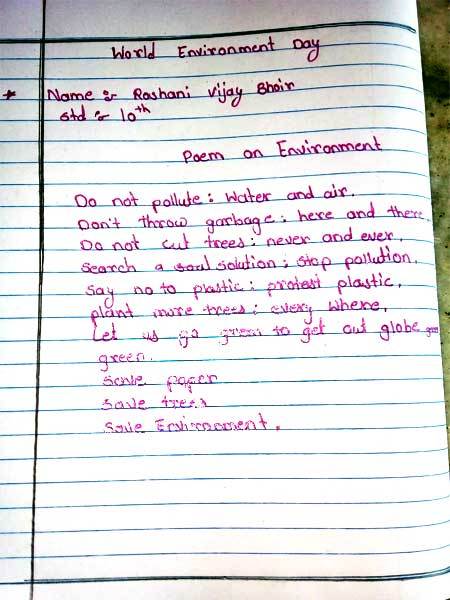 World Environment Day
* Name :- Roshani Vijay Bhoir
std :- 10th
Poem on Environment
Do not pollute : Water and air.
Don't throw garbage : here and there.
Do not cut trees : never and ever.
Search a soul solution ; stop pollution.
Say no to plastic : protest plastic.
plant more trees : every where.
Let us go green to get out globe green
green.
Save paper
Save trees
Save Environment.